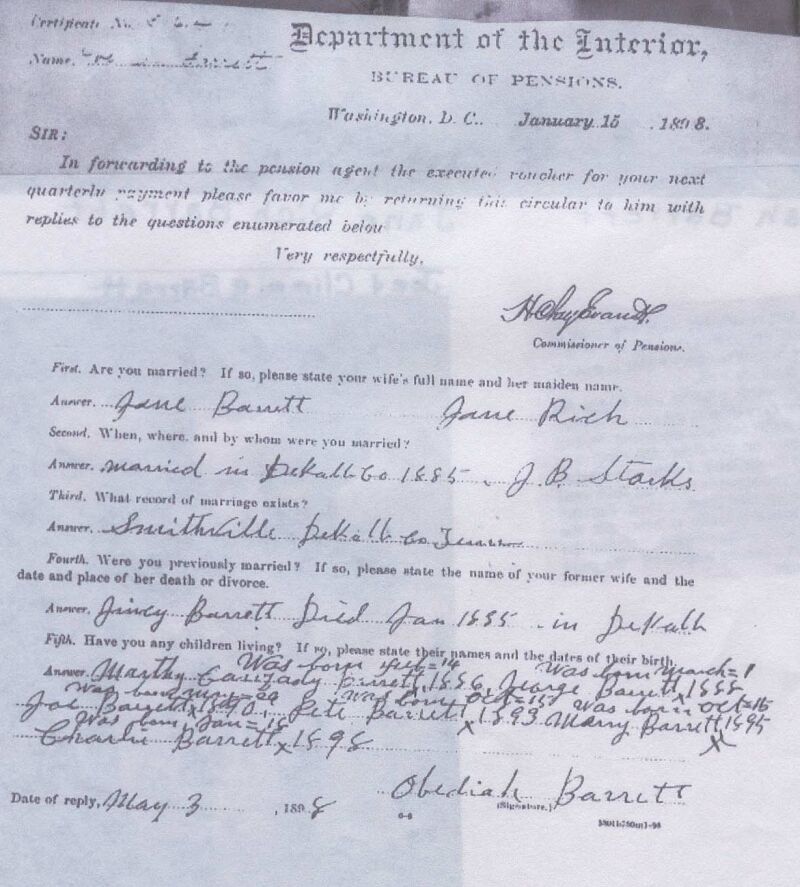 Certificate No.
Department of the Interior,
Name, Barrett
BUREAU OF PENSIONS.
Washington, D. C., January 15, 1898.
SIR:
In forwarding to the pension agent the executed voucher for your next
quarterly payment please favor me by returning this circular to him with
replies to the questions enumerated below
Very respectfully,
H Clay Evans
Commissioner of Pensions.
First. Are you married? If so, please state your wife's full name and her maiden name.
Answer. Jane Barrett Jane Rich
Second. When, where, and by whom were you married?
Answer. married in Dekalb Co 1885 J. B. Starks
Third. What record of marriage exists?
Answer. Smithville Dekalb Co Tenn
Fourth. Were you previously married? If so, please state the name of your former wife and the
date and place of her death or divorce.
Answer. Jincy Barrett Died Jan 1885 in Dekalb
Fifth. Have you any children living? If so, please state their names and the dates of their birth.
Was born Feb=14 Was born March=1
Answer. Marthy Barrett, 1886, George Barrett x 1888
Was born 20 Was born Oct=15 Was born Oct=15
Joe Barrett x 1890. Pete Barrett x 1893 Marry Barrett x 1895
Was born Jan=18
Charlie Barrett x 1898
Obediah Barrett
Date of reply, May 3, 1898
(Signature.)
6-6